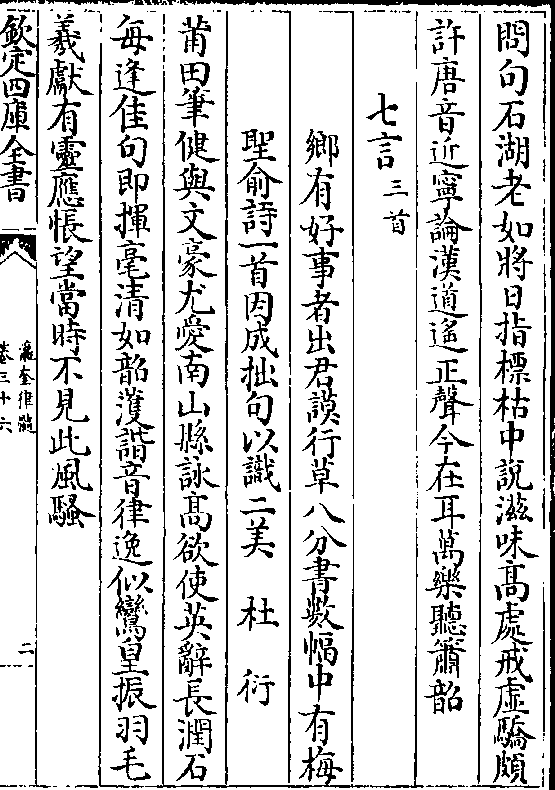 問句石湖老如將日指標枯中說滋味髙處戒虛驕頗
許唐音近寧論漢道遙正聲今在耳萬樂聽簫韶
七言三首
鄉有好事者出君謨行草八分書數幅中有梅
聖俞詩一首因成拙句以識二美 杜衍
莆田筆健與文豪尤愛南山縣詠髙欲使英辭長潤石
每逢佳句即揮毫清如韶濩諧音律逸似鸞皇振羽毛
羲獻有靈應悵望當時不見此風騷
欽定四庫全書
瀛奎律髓
卷三十六
二